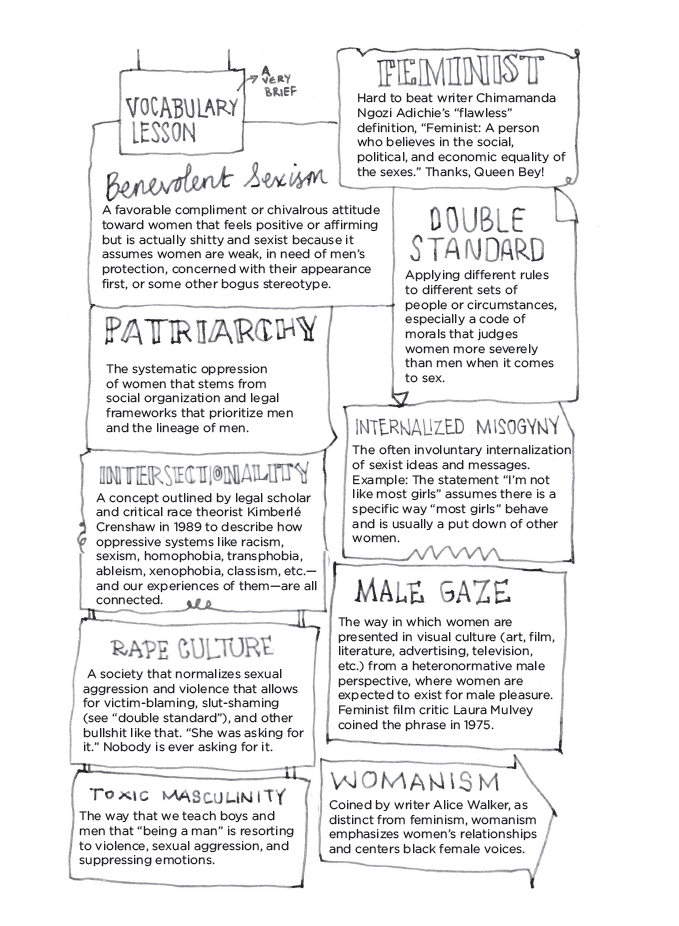 VOCABULARY
LESSON
A
VERY
BRIEF
FEMINIST
Hard to beat writer Chimamanda
Ngozi Adichie’s “flawless”
definition, “Feminist: A person
who believes in the social,
political, and economic equality of
the sexes.” Thanks, Queen Bey!
Benevolent Sexism
A favorable compliment or chivalrous attitude
toward women that feels positive or affirming
but is actually shitty and sexist because it
assumes women are weak, in need of men’s
protection, concerned with their appearance
first, or some other bogus stereotype.
DOUBLE
STANDARD
Applying different rules
to different sets of
people or circumstances,
especially a code of
morals that judges
women more severely
than men when it comes
to sex.
PATRIARCHY
The systematic oppression
of women that stems from
social organization and legal
frameworks that prioritize men
and the lineage of men.
INTERNALIZED MISOGYNY
The often involuntary internalization
of sexist ideas and messages.
Example: The statement “I’m not
like most girls” assumes there is a
specific way “most girls” behave
and is usually a put down of other
women.
INTERSECTIONALITY
A concept outlined by legal scholar
and critical race theorist Kimberlé
Crenshaw in 1989 to describe how
oppressive systems like racism,
sexism, homophobia, transphobia,
ableism, xenophobia, classism, etc.—
and our experiences of them—are all
connected.
MALE GAZE
The way in which women are
presented in visual culture (art, film,
literature, advertising, television,
etc.) from a heteronormative male
perspective, where women are
expected to exist for male pleasure.
Feminist film critic Laura Mulvey
coined the phrase in 1975.
RAPE CULTURE
A society that normalizes sexual
aggression and violence that allows
for victim-blaming, slut-shaming
(see “double standard”), and other
bullshit like that. “She was asking for
it.” Nobody is ever asking for it.
WOMANISM
Coined by writer Alice Walker, as
distinct from feminism, womanism
emphasizes women’s relationships
and centers black female voices.
TOXIC MASCULINITY
The way that we teach boys and
men that “being a man” is resorting
to violence, sexual aggression, and
suppressing emotions.